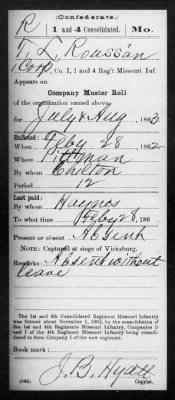 (Confederate.)
R 1 and 4 Consolidated. Mo.
T. L. Roussan
Corp, Co. I, 1 and 4 Reg't Missouri Inf.
Appears on
Company Muster Roll
of the organization named above,
for July & Aug, 1863.
Enlisted:
When Feby 28, 1862
Where Pittman
By whom Chilton
Period 12
Last paid:
By whom Haynes
To what time Feby 28, 186
Present or absent Absent
NOTE: Captured at siege of Vicksburg.
Remarks: Absent without
leave
The 1st and 4th Consolidated Regiment Missouri Infantry
was formed about November 1, 1862, by the consolidation of
the 1st and 4th Regiments Missouri Infantry, Companies D
and I of the 4th Regiment Missouri Infantry being consoli-
dated to form Company I of the new regiment.
Book mark:
J. B. Hyatt
(642) Copyist.